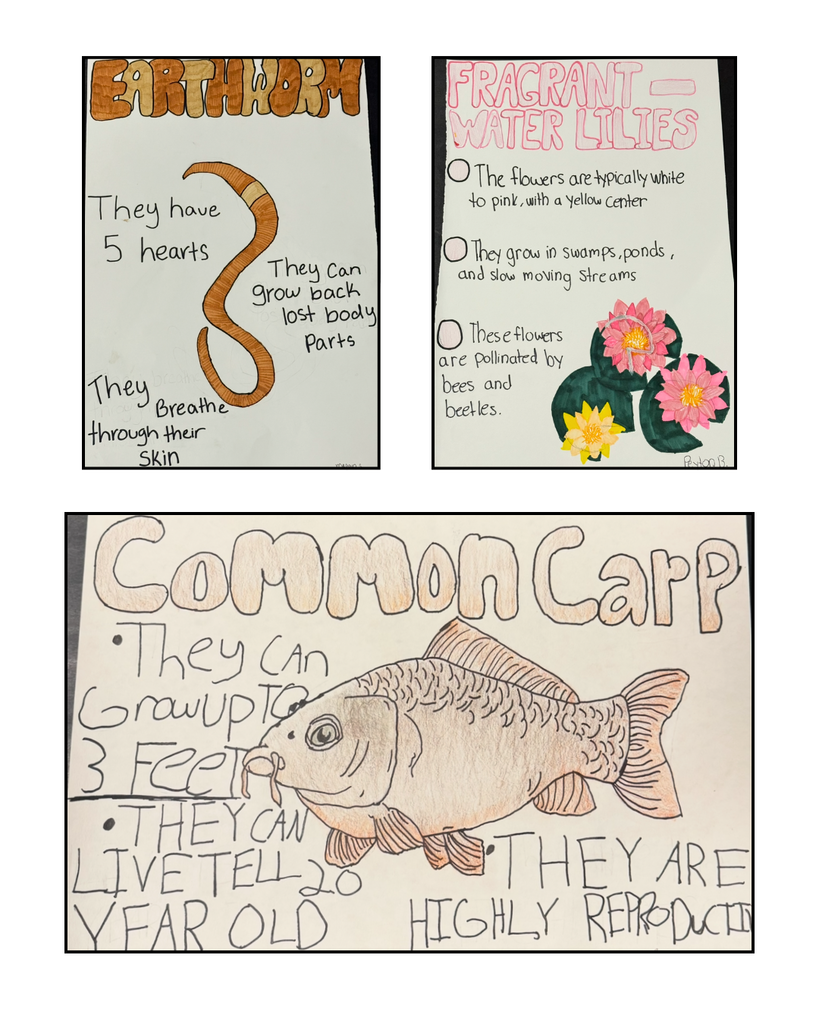 EARTHWORM
They have
5 hearts
They Can
grow back
lost body
Parts
They
Breathe
through their
Skin
FRAGRANT —
WATER LILIES
The flowers are typically white
to pink, with a yellow center
They grow in swamps, ponds,
and slow moving streams
These flowers
are pollinated by
bees and
beetles.
Peyton B.
Common Carp
• They CAN
Grow up To
3 FeeT
• THEY CAN
LIVE TELL 20
YEAR OLD
• THEY ARE
HIGHLY REPRODUCTIV